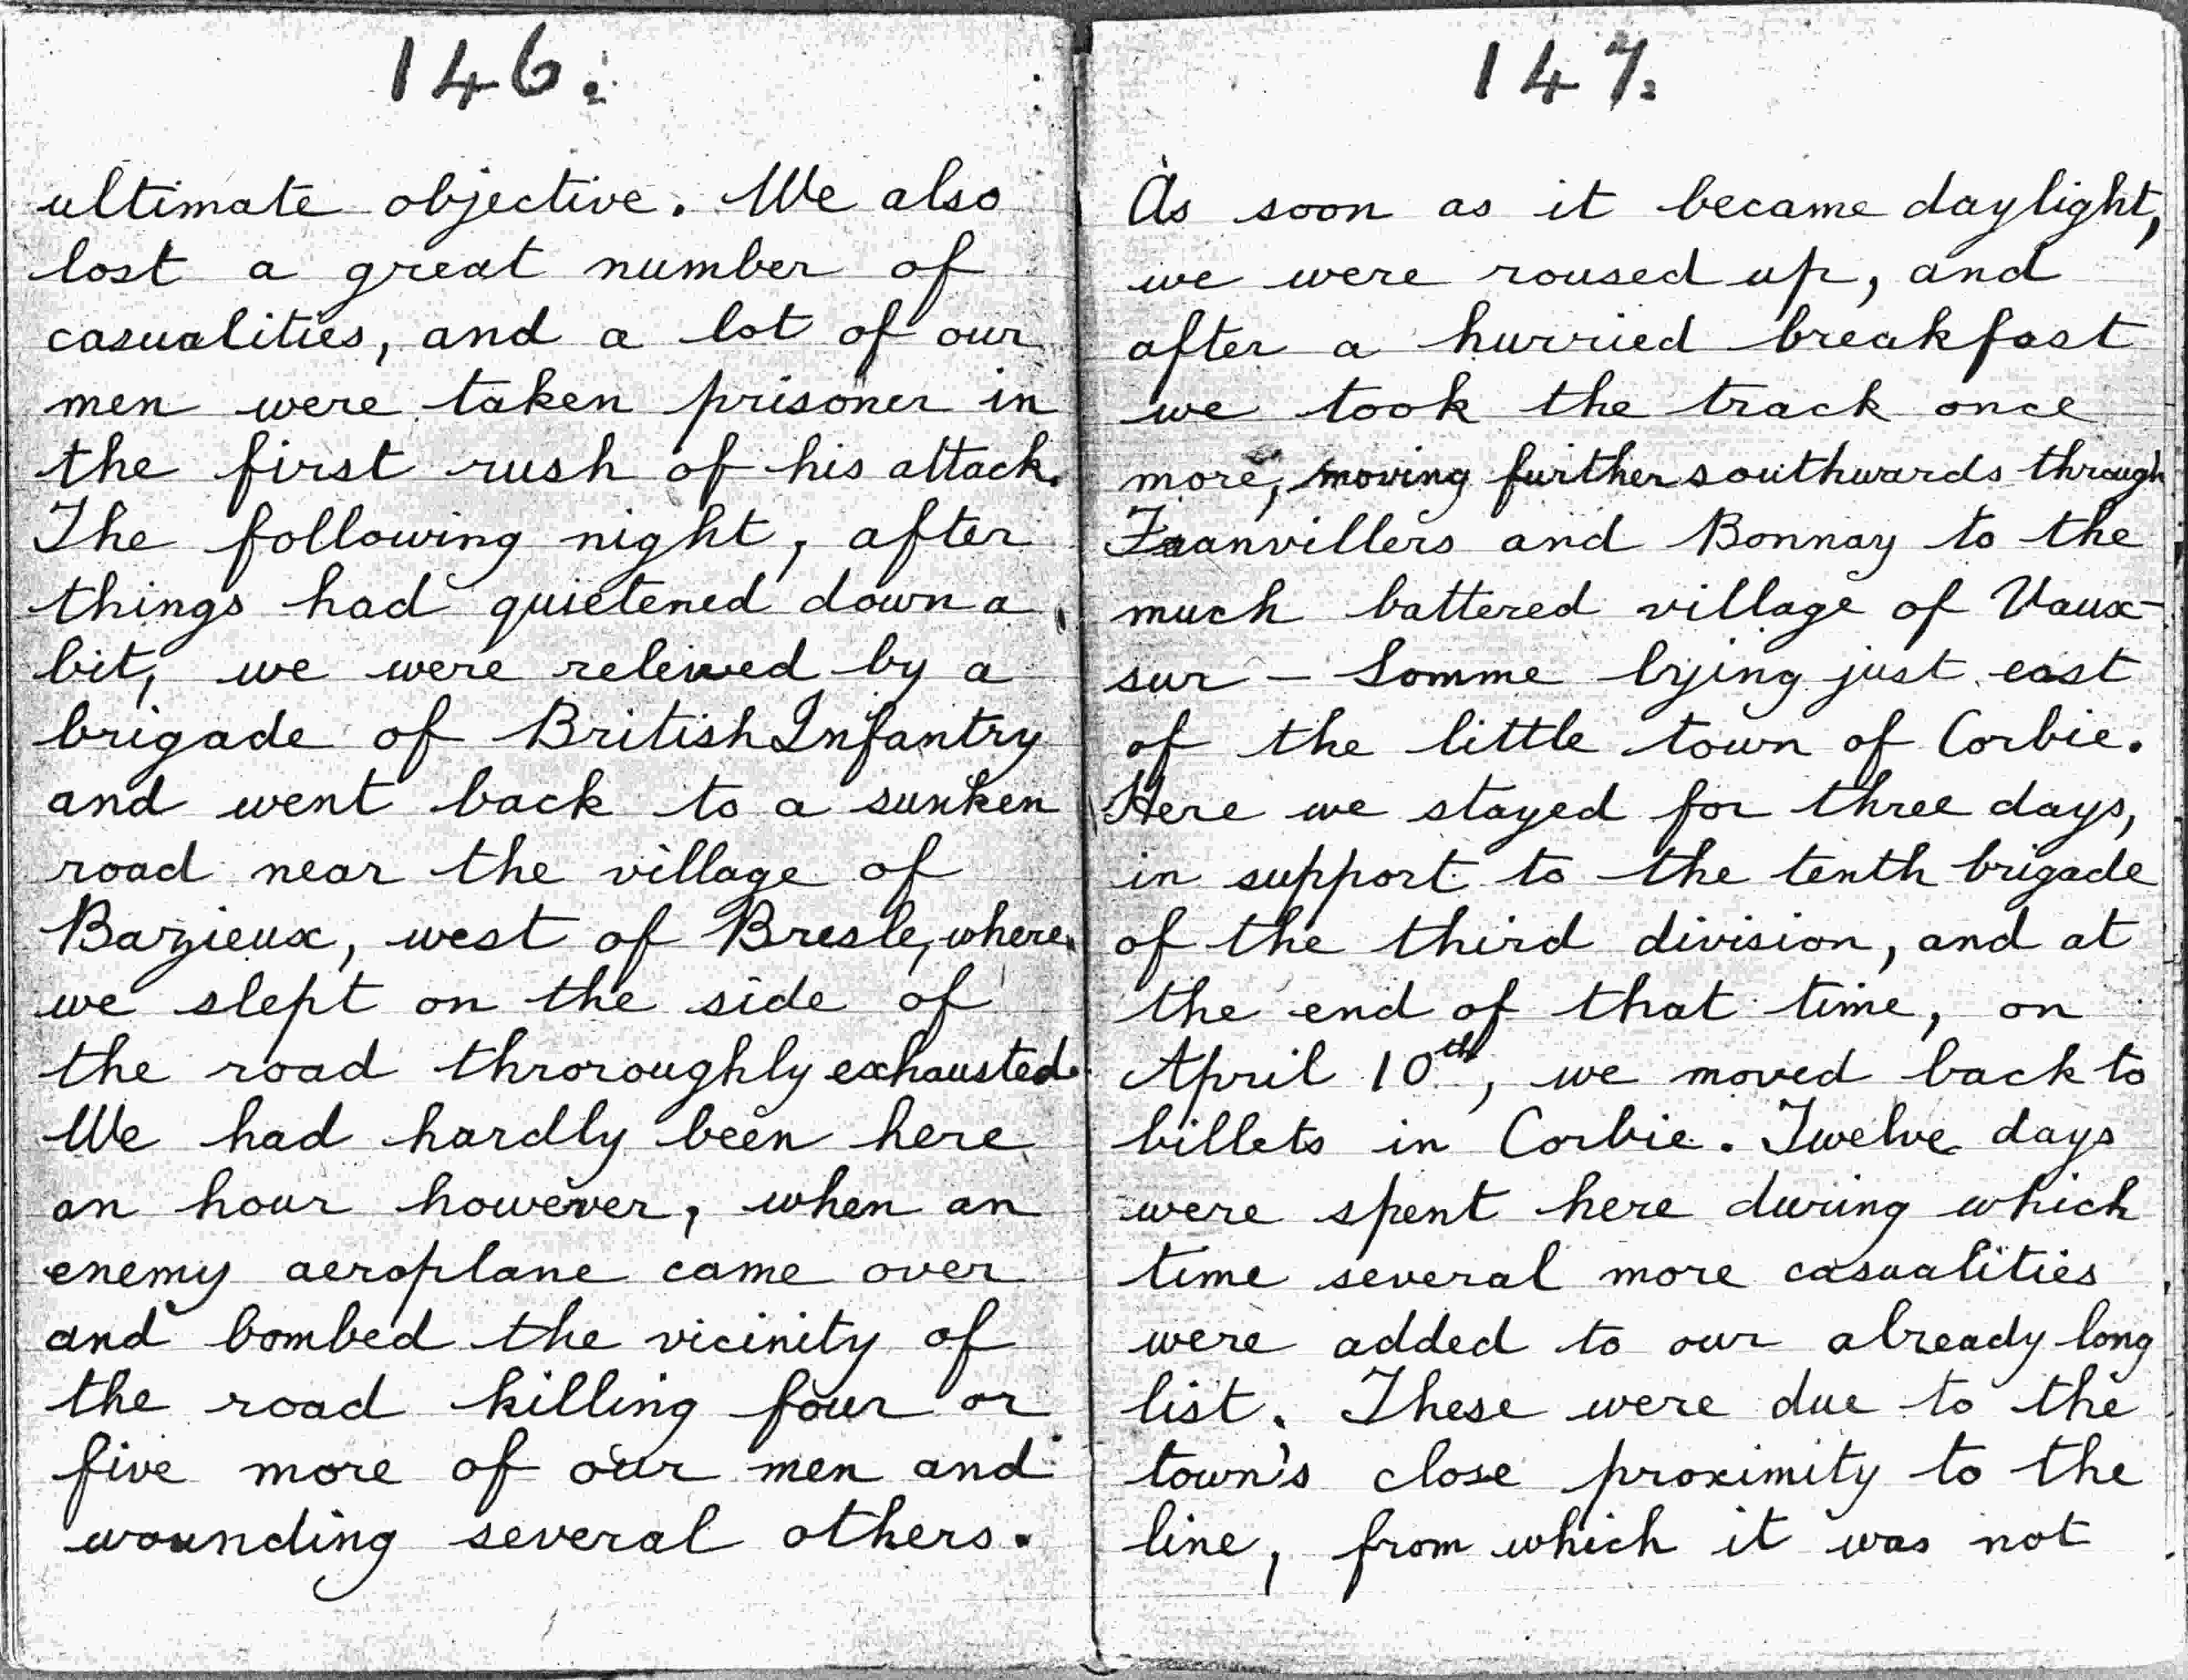 146.
ultimate objective. We also
lost a great number of
casualities, and a lot of our
men were taken prisoner in
the first rush of his attack.
The following night, after
things had quietened down a
bit, we were releived by a
brigade of British Infantry
and went back to a sunken
road near the village of
Bazieux, west of Bresle, where
we slept on the side of
the road throroughly exhausted.
We had hardly been here
an hour however, when an
enemy aeroplane came over
and bombed the vicinity of
the road killing four or
five more of our men and
wounding several others.
147.
As soon as it became daylight,
we were roused up, and
after a hurried breakfast
we took the track once
more, moving further southwards through
Franvillers and Bonnay to the
much battered village of Vaux-
sur-Somme lying just east
of the little town of Corbie.
Here we stayed for three days,
in support to the tenth brigade
of the third division, and at
the end of that time, on
April 10th, we moved back to
billets in Corbie. Twelve days
were spent here during which
time several more casualities
were added to our already long
list. These were due to the
town's close proximity to the
line, from which it was not